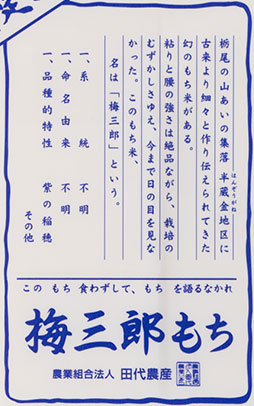 栃尾の山あいの集落 半蔵金地区に
はんぞうがね
古来より細々と作り伝えられてきた
幻のもち米がある。
粘りと腰の強さは絶品ながら、栽培の
むずかしさゆえ、今まで日の目を見な
かった。このもち米、
名は「梅三郎」という。
一、系統 不明
一、命名由来 不明
一、品種的特性 紫の稲穂
その他
この もち 食わずして、もち を語るなかれ
梅三郎もち
農業組合法人 田代農産